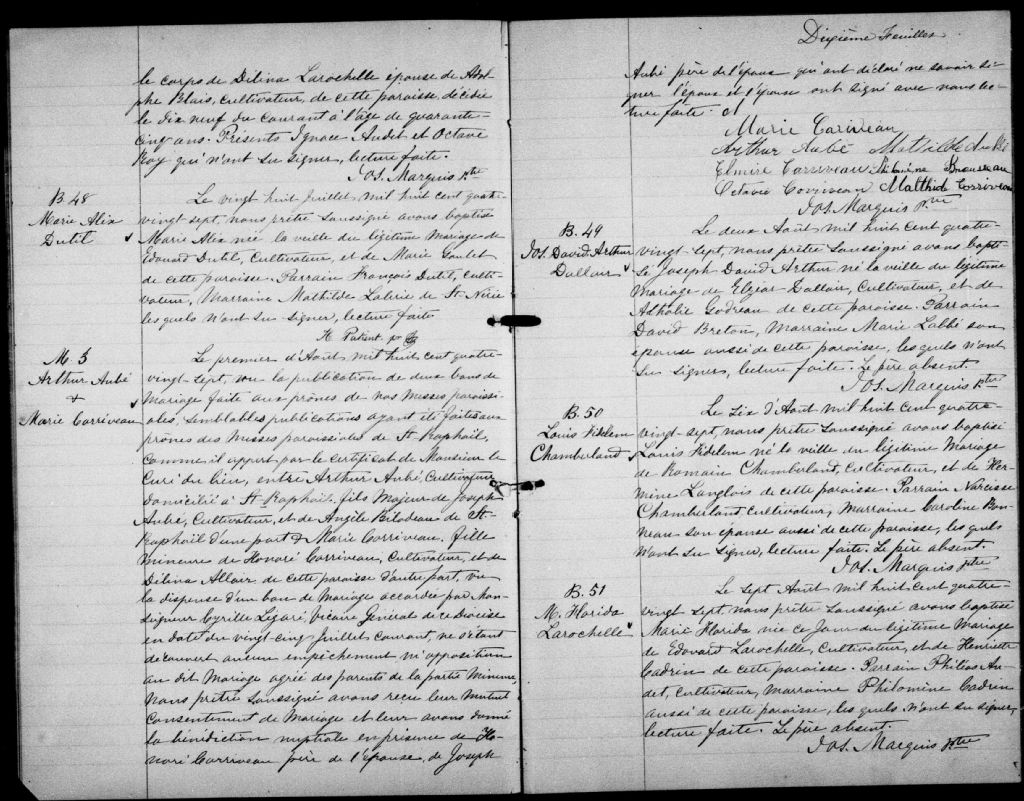 le corps de Délina Larochelle épouse de Adol-
phe Blais, cultivateur, de cette paroisse, décédée
le dix neuf du courant à l'âge de quarante-
cinq ans. Présents Ignace Audet et Octave
Roy qui n'ont su signer, lecture faite.
Jos. Marquis ptre
B. 48
Marie Alix
Dutil
Le vingt huit Juillet, mil huit cent quatre-
vingt sept, nous prêtre soussigné avons baptisé
Marie Alix née la veille du légitime mariage de
Edouard Dutil, Cultivateur, et de Marie Goulet
de cette paroisse. Parrain François Dutil, culti-
vateur, Marraine Mathilde Labrie de St Nérée
lesquels n'ont su signer, lecture faite
M. 3
Arthur Aubé
+
Marie Corriveau
Le premier d'Août mil huit cent quatre-
vingt-sept, vu la publication de deux bans de
mariage faite aux prônes de nos messes paroissi-
ales, semblables publications ayant été faites aux
prônes des messes paroissiales de St Raphaël,
comme il appert par le certificat de Monsieur le
Curé du lieu, entre Arthur Aubé, Cultivateur
domicilié à St Raphaël, fils majeur de Joseph
Aubé, Cultivateur, et de Angèle Bilodeau de St-
Raphaël d'une part & Marie Corriveau, fille
mineure de Honoré Corriveau, Cultivateur, et de
Délina Allair, de cette paroisse d'autre part, vu
la dispense d'un ban de mariage accordée par Mon-
seigneur Cyrille Légaré, Vicaire Général de ce diocèse
en date du vingt cinq Juillet courant, ne s'étant
découvert aucun empêchement ni opposition
au dit mariage agréé des parents de la partie mineure,
nous prêtre soussigné avons reçu leur mutuel
consentement de mariage et leur avons donné
la bénédiction nuptiale en présence de Ho-
noré Corriveau père de l'épouse, de Joseph
Dixième Feuillet
Aubé père de l'époux qui ont déclaré ne savoir si-
gner l'époux et l'épouse ont signé avec nous lec-
ture faite.
Marie Cariveau
Arthur Aubé Matilde Aubé
Elmire Corriveau Philomène Brousseau
Octavie Coriveau Malthide Corriveau
Jos. Marquis ptre
B. 49
Jos. David Arthur
Dallair
Le deux Août mil huit cent quatre-
vingt-sept, nous prêtre soussigné avons bapti-
sé Joseph David Arthur né la veille du légitime
mariage de Elzéar Dallair, Cultivateur, et de
Athalie Godreau de cette paroisse. Parrain
David Breton, Marraine Marie Labbé son
épouse aussi de cette paroisse, lesquels n'ont
su signer, lecture faite. Le père absent.
Jos. Marquis ptre
B. 50
Louis Fidelem
Chamberland
Le six d'Août mil huit cent quatre-
vingt-sept, nous prêtre soussigné avons baptisé
Louis Fidelem né la veille du légitime mariage
de Romain Chamberland, Cultivateur, et de Her-
mine Langlois de cette paroisse. Parrain Narcisse
Chamberlant Cultivateur, marraine Caroline Ron-
neau son épouse aussi de cette paroisse, lesquels
n'ont su signer, lecture faite. Le père absent.
Jos. Marquis ptre
B. 51
M. Florida
Larochelle
Le sept Août mil huit cent quatre-
vingt sept, nous prêtre soussigné avons baptisé
Marie Florida née ce jour du légitime mariage
de Edouard Larochelle, Cultivateur, et de Henriette
Cadrin de cette paroisse. Parrain Philéas Au-
det, Cultivateur, marraine Philomène Cadrin
aussi de cette paroisse, lesquels n'ont su signer,
lecture faite. Le père absent.
Jos. Marquis ptre